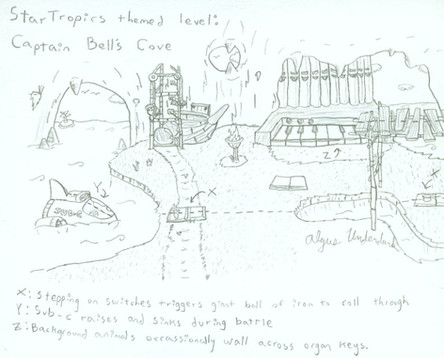 StarTropics themed level:
Captain Bell's Cove
Z
X
Y
SUB-C
X
X: Stepping on switches triggers giant ball of iron to roll through
Y: Sub-c raises and sinks during battle
Z: Background animals occassionally walk across organ keys.